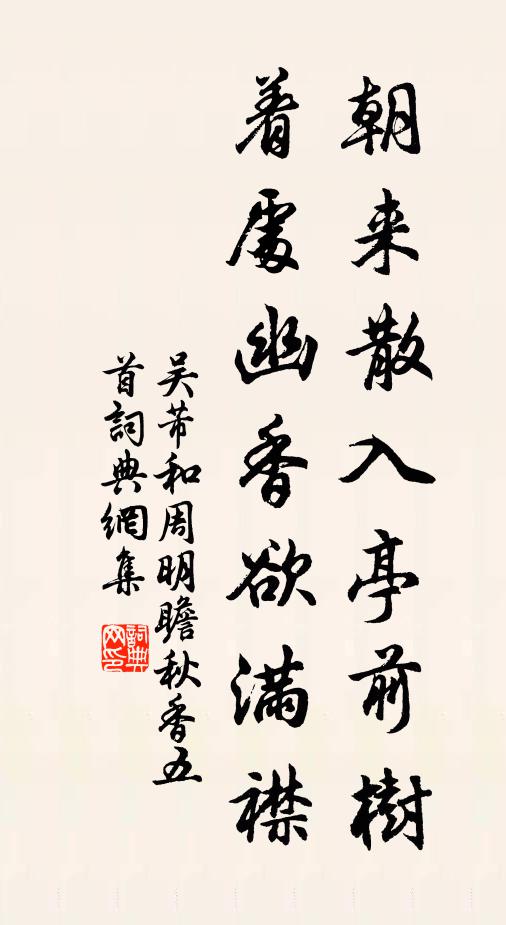 朝来散入亭前樹
着處幽香欲満襟
吴芾和周明瞻秋香五
首詞典網集
詞典
网印